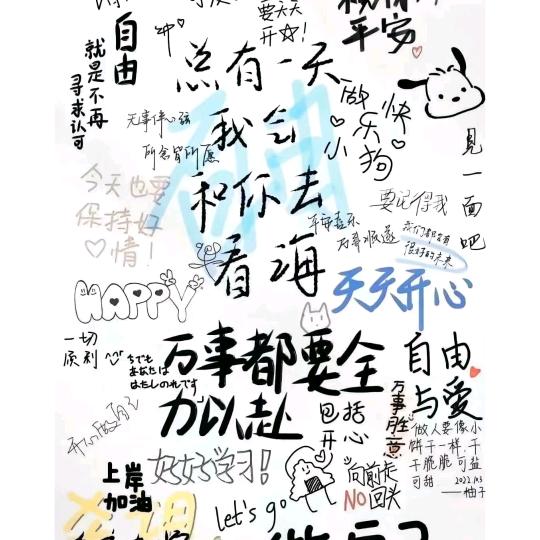 要天天
开☆!
平安
自由
就是不再
寻求认可
总有一天
我会
和你去
看海
自由
做
快
乐
小
狗
见一面吧
无事伴心弦
所念皆所愿
今天也要
保持好
♡情!
要记得我
平安喜乐
万事顺遂
我们都会有
很好的未来
天天开心
HAPPY
一切
顺利
ちでも
あなたは
わたしのれです
万事都要全
力以赴
自由
与爱
万事胜意
包括
开心
做人要像小
饼干一样,干
干脆脆可盐
可甜
2022.10.3
——柚子
开心做自己
好好学习!
上岸
加油
向前走
NO回头
let's go